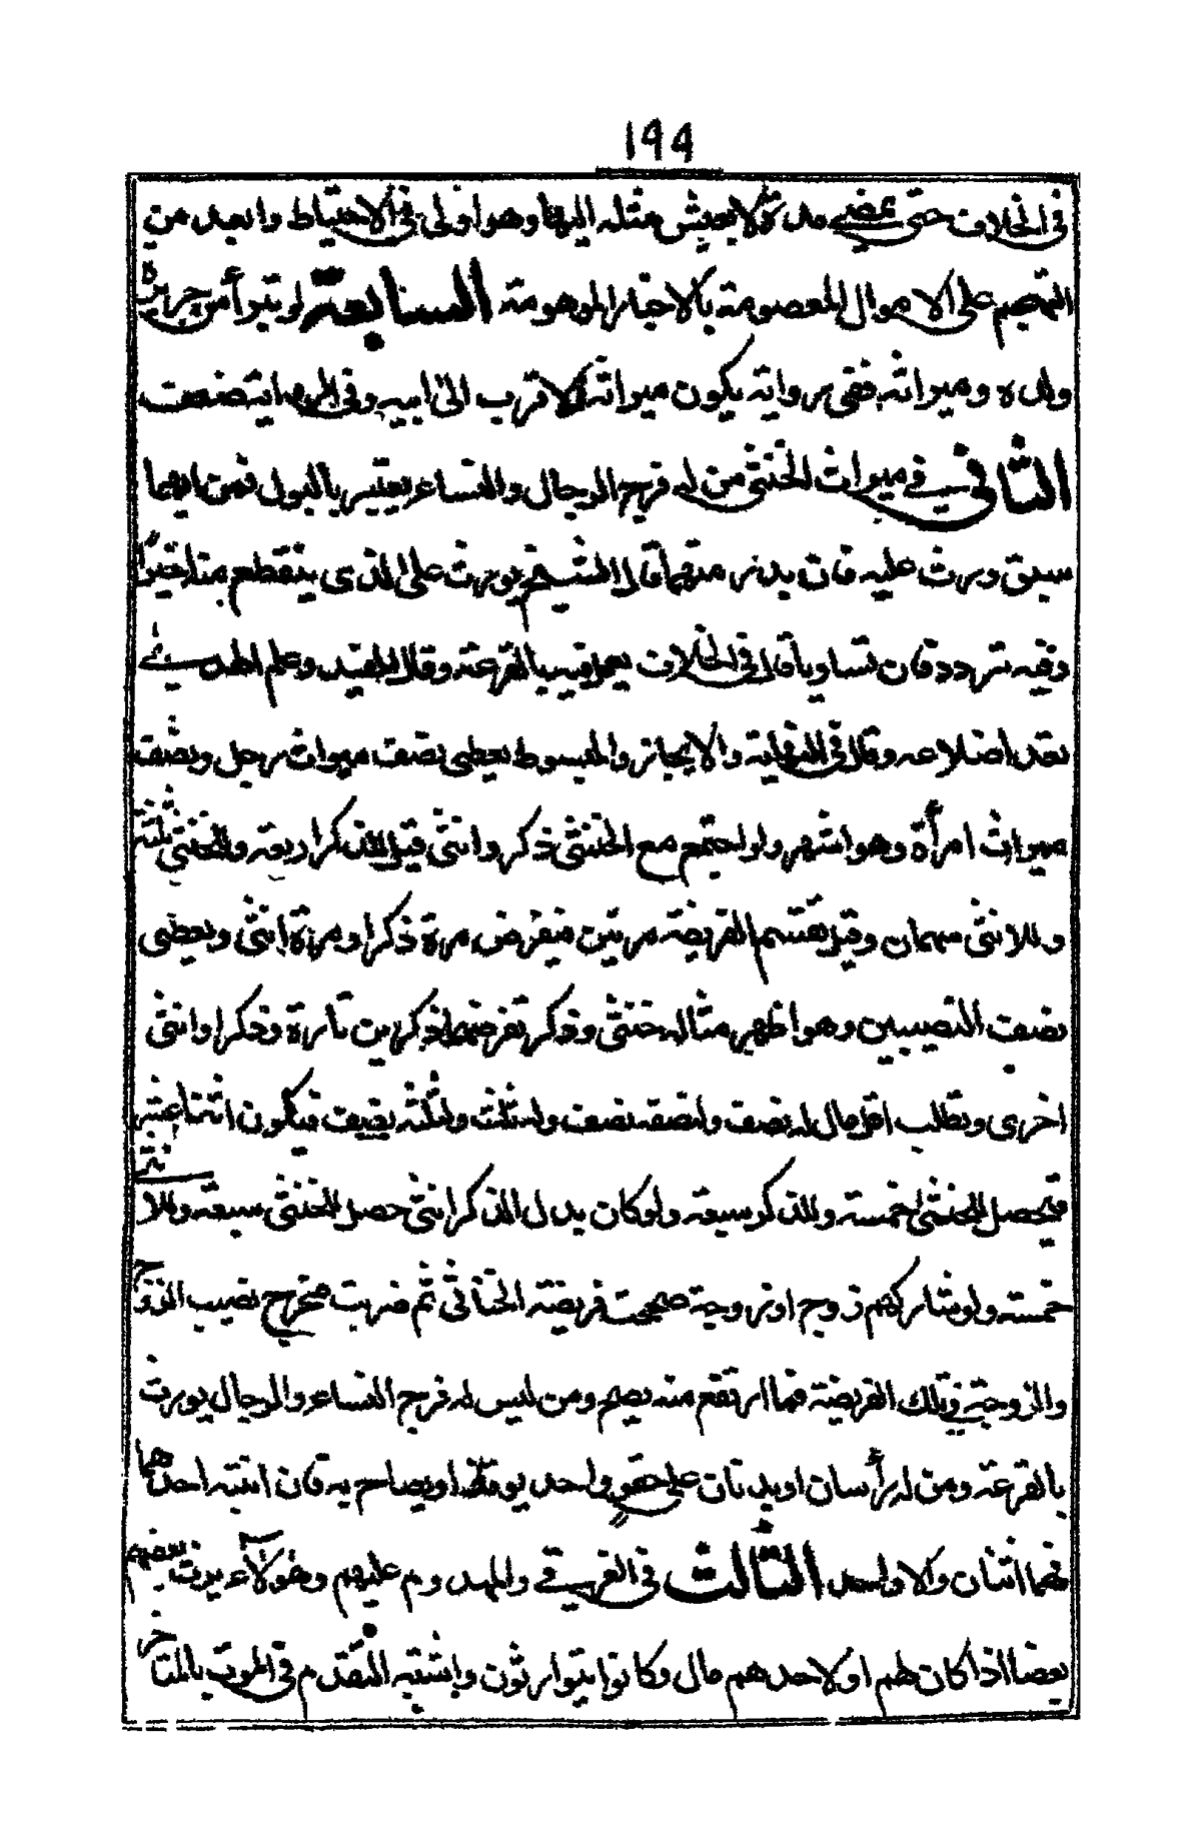 ١٩٤
في الخلاف حتى تمضي مدة لا يعيش مثله اليها وهو اولى في الاحتياط وابعد من
التهجم على الاموال المعصومة بالاخبار الموهومة السابعة لو تبرأ من جريرة
ولده وميراثه ففي رواية يكون ميراثه للاقرب الى ابيه وفي الرواية ضعف
الثاني في ميراث الخنثى من له فرج الرجال والنساء يعتبر بالبول فمن ايهما
سبق ورث عليه فان بدر منهما قال الشيخ يورث على الذي ينقطع منه اخيرًا
وفيه تردد فان تساويا قال في الخلاف يعمل فيه بالقرعة وقال المفيد وعلم الهدى
تعد اضلاعه وقال في النهاية والايجاز والمبسوط يعطى نصف ميراث رجل ونصف
ميراث امرأة وهو اشهر ولو اجتمع مع الخنثى ذكر وانثى قيل للذكر اربعة وللخنثى ثلثة
وللانثى سهمان وقيل تقسم الفريضة مرتين فيفرض مرة ذكرا ومرة انثى ويعطى
نصف النصيبين وهو اظهر مثاله خنثى وذكر تفرضهما ذكرين تارة وذكرا وانثى
اخرى وتطلب اقل مال له نصف ولنصفه نصف وله ثلث ولثلثه نصف فيكون اثنا عشر
فيحصل للخنثى خمسة وللذكر سبعة ولو كان بدل الذكر انثى حصل للخنثى سبعة وللانثى
خمسة ولو شاركهم زوج او زوجة صححت فريضة الخناثى ثم ضربت مخرج نصيب الزوج
والزوجة في تلك الفريضة فما ارتفع منه يصح ومن ليس له فرج النساء والرجال يورث
بالقرعة ومن له رأسان او بدنان على حقو واحد يوقظ او يصاح به فان انتبه احدهما
فهما اثنان والا واحد الثالث في الغرقى والمهدوم عليهم وهؤلآء يرث بعضهم
بعضا اذا كان لهم او لاحدهم مال وكانوا يتوارثون واشتبه المتقدم في الموت بالمتاخر